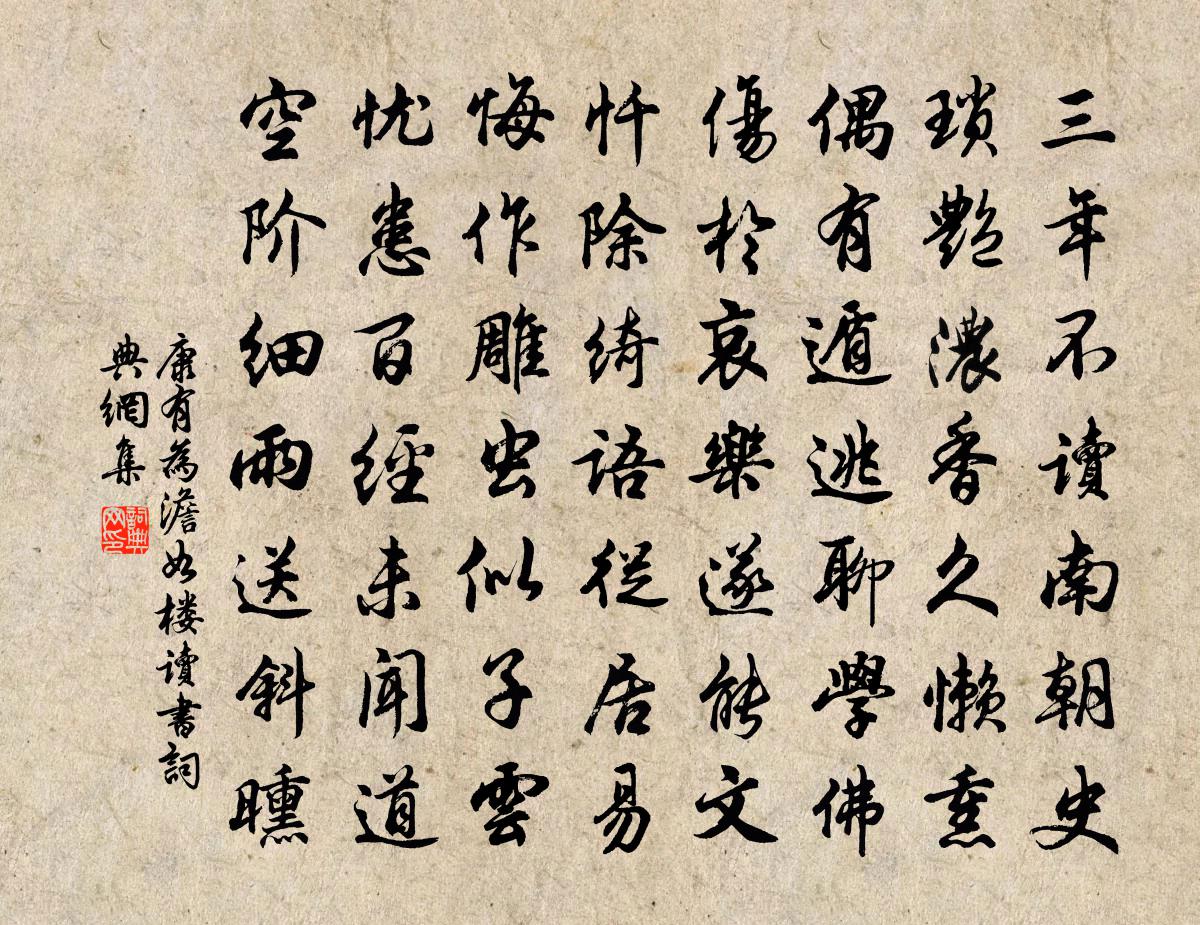 三年不讀南朝史
瑣艷濃香久懶熏
偶有遁逃聊學佛
傷於哀樂遂能文
忏除綺語從居易
悔作雕虫似子雲
忧患百經未聞道
空阶细雨送斜曛
康有為澹如楼讀書詞
典網集
詞典网印